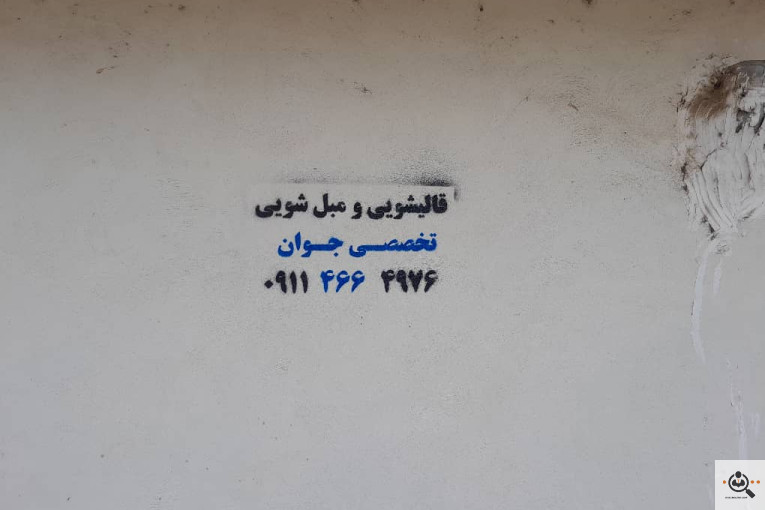 قالیشویی و مبل شویی
تخصصی جوان
۰۹۱۱ ۴۶۶ ۴۹۷۶